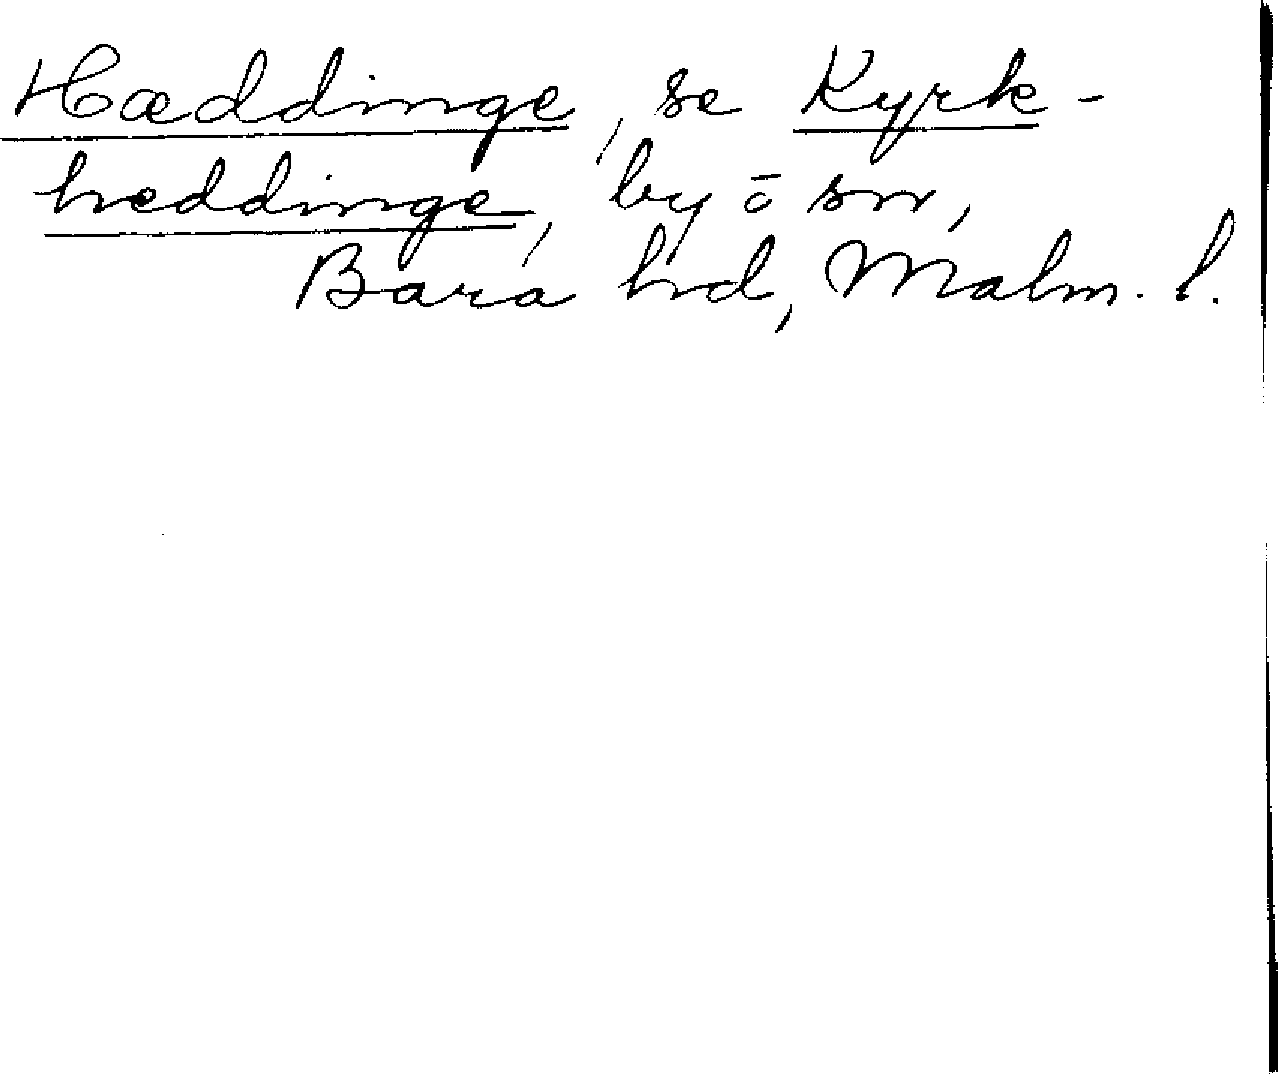 Hæddinge, se Kyrk-
heddinge, by ō sn,
Bara hd, Malm. l.